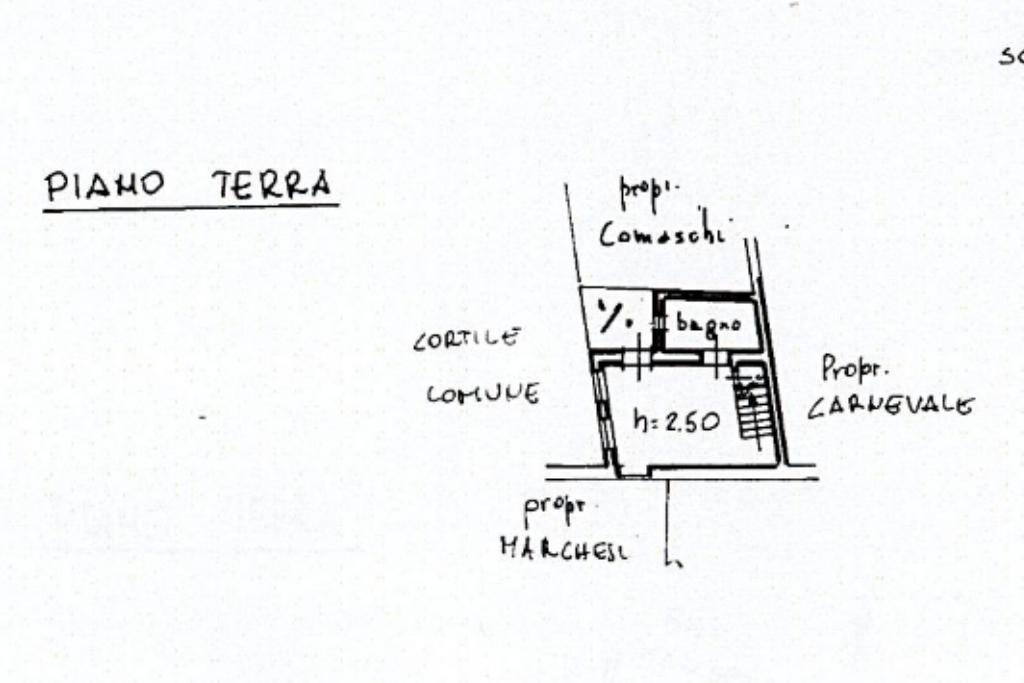 SC
PIANO TERRA
propr.
Comaschi
bagno
CORTILE
COMUNE
h=2.50
Propr.
CARNEVALE
propr.
MARCHESI